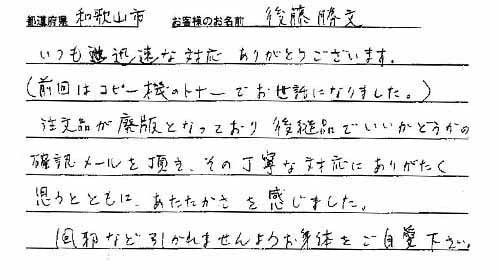 都道府県 和歌山市 お客様のお名前 後藤勝文
いつも迅速な対応 ありがとうございます。
(前回はコピー機のトナーでお世話になりました。)
注文品が廃版となっており 後継品でいいかどうかの
確認メールを頂き、その丁寧な対応にありがたく
思うとともに、あたたかさを感じました。
風邪など引かれませんようお身体をご自愛下さい。